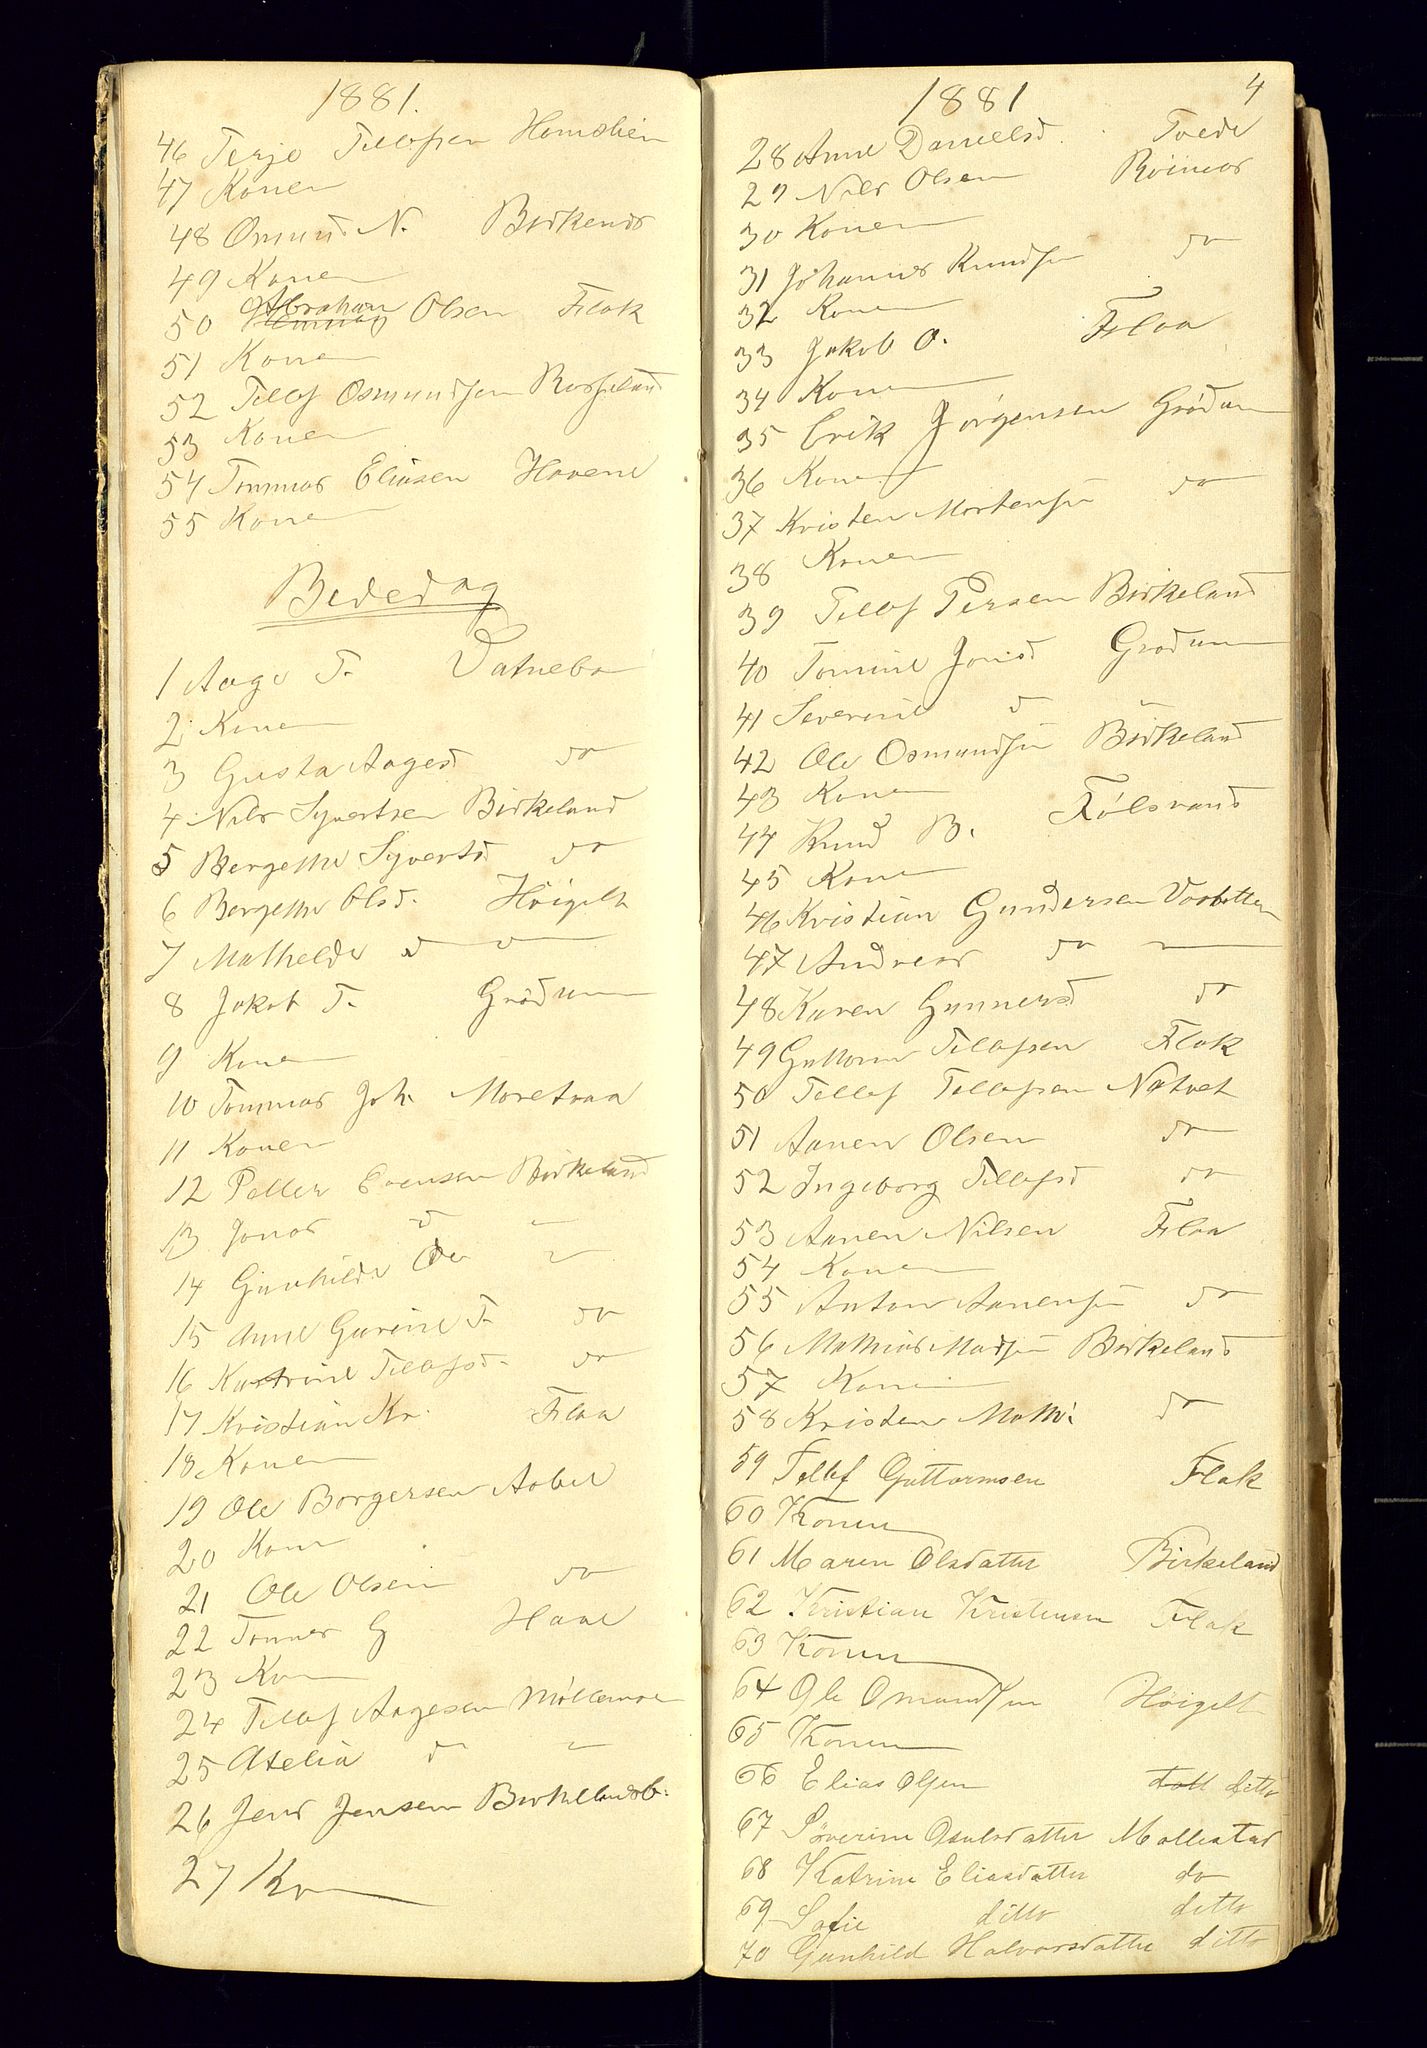 1881.
46 Terje Tellefsen Homslien
47 Konen
48 Osmund N. Birkenes
49 Konen
50 Abraham Olsen Flak
51 Konen
52 Tellef Osmundsen Rosseland
53 Konen
54 Tommas Eliasen Havene
55 Konen
Bededag
1 Aage T. Vatnebo
2 Konen
3 Gusta Aagesd do
4 Nils Syvertsen Birkeland
5 Bergethe Syvertsd do
6 Bergethe Olsd. Höigelt
7 Mathelde d o
8 Jakob T. Grödum
9 Konen
10 Tommas Joh. Moretraa
11 Konen
12 Petter Evensen Birkeland
13 Jonas d "
14 Gunhilde Ole "
15 Anne Gurine T. do
16 Katrine Tellefsd. do
17 Kristian Kr. Flaa
18 Konen
19 Ole Borgersen Aabel
20 Kone
21 Ole Olsen do
22 Tommes G Haae
23 Kon
24 Tellef Aagesen Möllemoe
25 Atelia d "
26 Jens Jensen Birkelandsb.
27 Kon
1881 4
28 Anne Danielsd Tvede
29 Nils Olsen Röinaas
30 Konen
31 Johannes Knudsen do
32 Kone
33 Jakob O. Flaa
34 Konen
35 Erik Jörgensen Grödum
36 Kone
37 Kristen Mortensen do
38 Konen
39 Tellef Persen Birkeland
40 Tomine Jonsd Grödum
41 Severine d "
42 Ole Osmundsen Birkeland
43 Konen
44 Knud B. Fölsvand
45 Konen
46 Kristian Gundersen Vasbotten
47 Andreas do
48 Karen Gunnersd do
49 Guttorm Tellefsen Flak
50 Tellef Tellefsen Natvet
51 Aanen Olsen do
52 Ingeborg Tellefsd do
53 Aanen Nilsen Flaa
54 Konen
55 Anton Aanensen do
56 Mathias Madsen Birkeland
57 Konen
58 Kristen Math: do
59 Tellef Guttormsen Flak
60 Konen
61 Maren Olsdatter Birkeland
62 Kristian Kristensen Flak
63 Konen
64 Ole Osmundsen Höigelt
65 Konen
66 Elias Olsen ditto
67 Söverine Osulsdatter Mollestad
68 Katrine Eliasdatter do
69 Sofie ditto ditto
70 Gunhild Halvorsdatter ditto